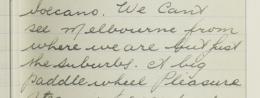 volcano. We Cant
see Melbourne from
where we are but just
the suburbs. A big
paddle wheel Pleasure